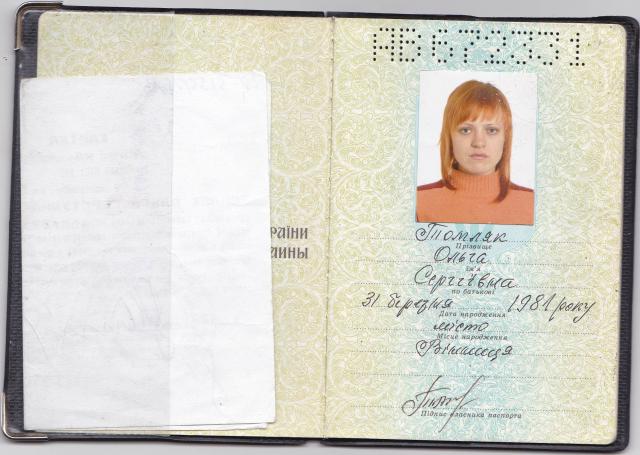 АВ672331
раїни
аины
Томляк
Прізвище
Ольга
Ім'я
Сергіївна
по батькові
31 березня 1981 року
Дата народження
місто
Місце народження
Вінниця
Підпис власника паспорта